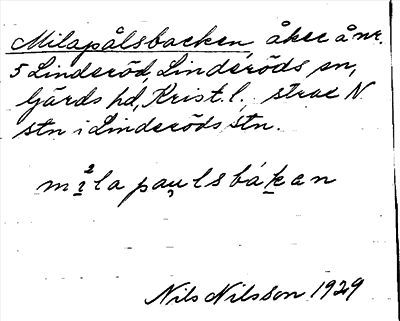 Milapålsbacken, åker å nr.
5 Linderöd, Linderöds sn,
Gärds hd, Krist. l., strax N
stn i Linderöds stn.
mi²la pau̯lsbákan
Nils Nilsson 1929